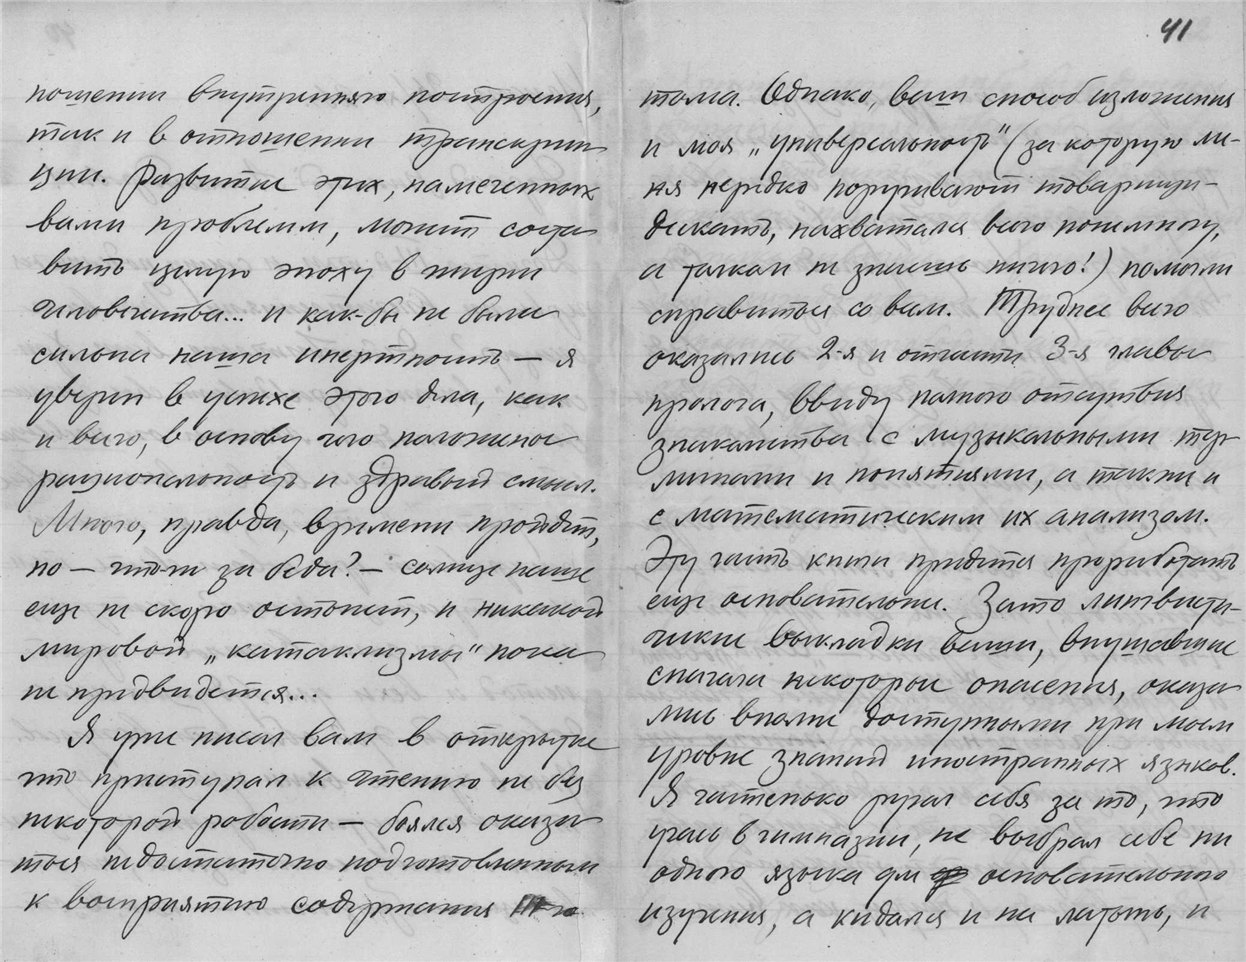 ношении внутреннего построения,
так и в отношении транскрип
ции. Развитие этих, намеченных
вами проблемм, может соста
вить целую эпоху в жизни
человечества... и как-бы не была
сильна наша инертность — я
уверен в успехе этого дела, как
и всего, в основу чего положена
рациональность и здравый смысл.
Много, правда, времени пройдет,
но — что-ж за беда? — солнце наше
еще не скоро остынет, и никакой
мировой „катаклизмы" пока
не придвидется...
Я уже писал вам в открытке
что приступал к чтению не без
некоторой робости — боялся оказа
ться недостаточно подготовленным
к восприятию содержания III-го
41
тома. Однако, ваш способ изложения
и моя „универсальность" (за которую ме-
ня нередко поругивают товарищи —
дескать, нахватался всего понемногу,
а толком не знаешь ничего!) помогли
справиться со всем. Труднее всего
оказались 2-я и отчасти 3-я главы
пролога, ввиду полного отсутствия
знакомства с музыкальными тер
минами и понятиями, а также и
с математическим их анализом.
Эту часть книги придется проработать
еще основательнее. Зато лингвисти-
ческие выкладки ваши, внушавшие
сначала некоторые опасения, оказа
лись вполне доступными при моем
уровне знаний иностранных языков.
Я частенько ругал себя за то, что
учась в гимназии, не выбрал себе ни
одного языка для основательного
изучения, а кидался и на латынь, и